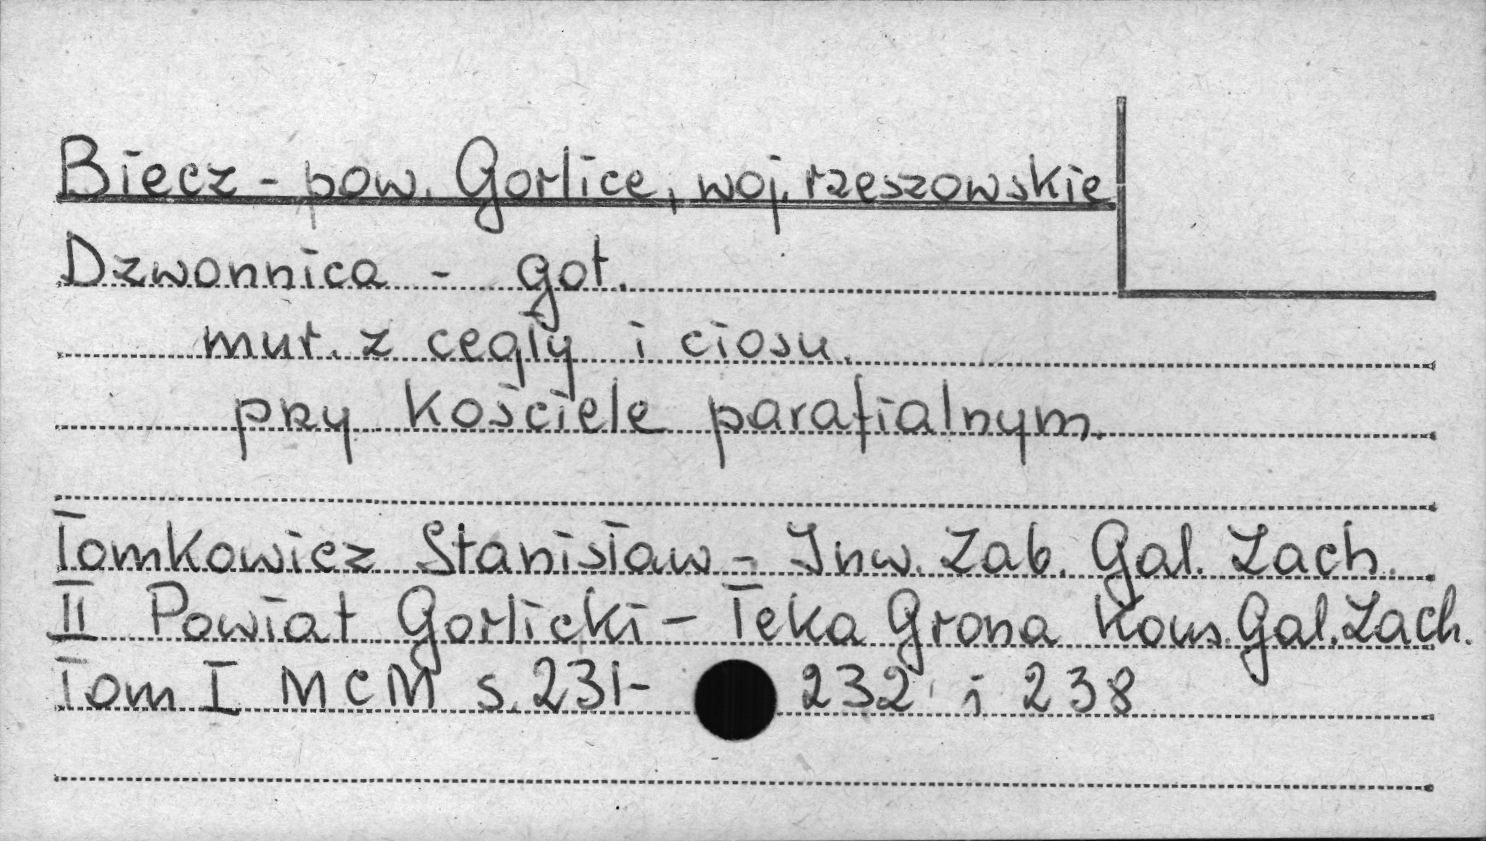 Biecz - pow. Gorlice, woj. rzeszowskie
Dzwonnica - got.
mur. z cegły i ciosu.
przy kościele parafialnym.
Tomkowicz Stanisław - Inw. Zab. Gal. Zach.
II Powiat Gorlicki - Teka Grona Kons. Gal. Zach.
Tom I MCM s. 231- 232 i 238